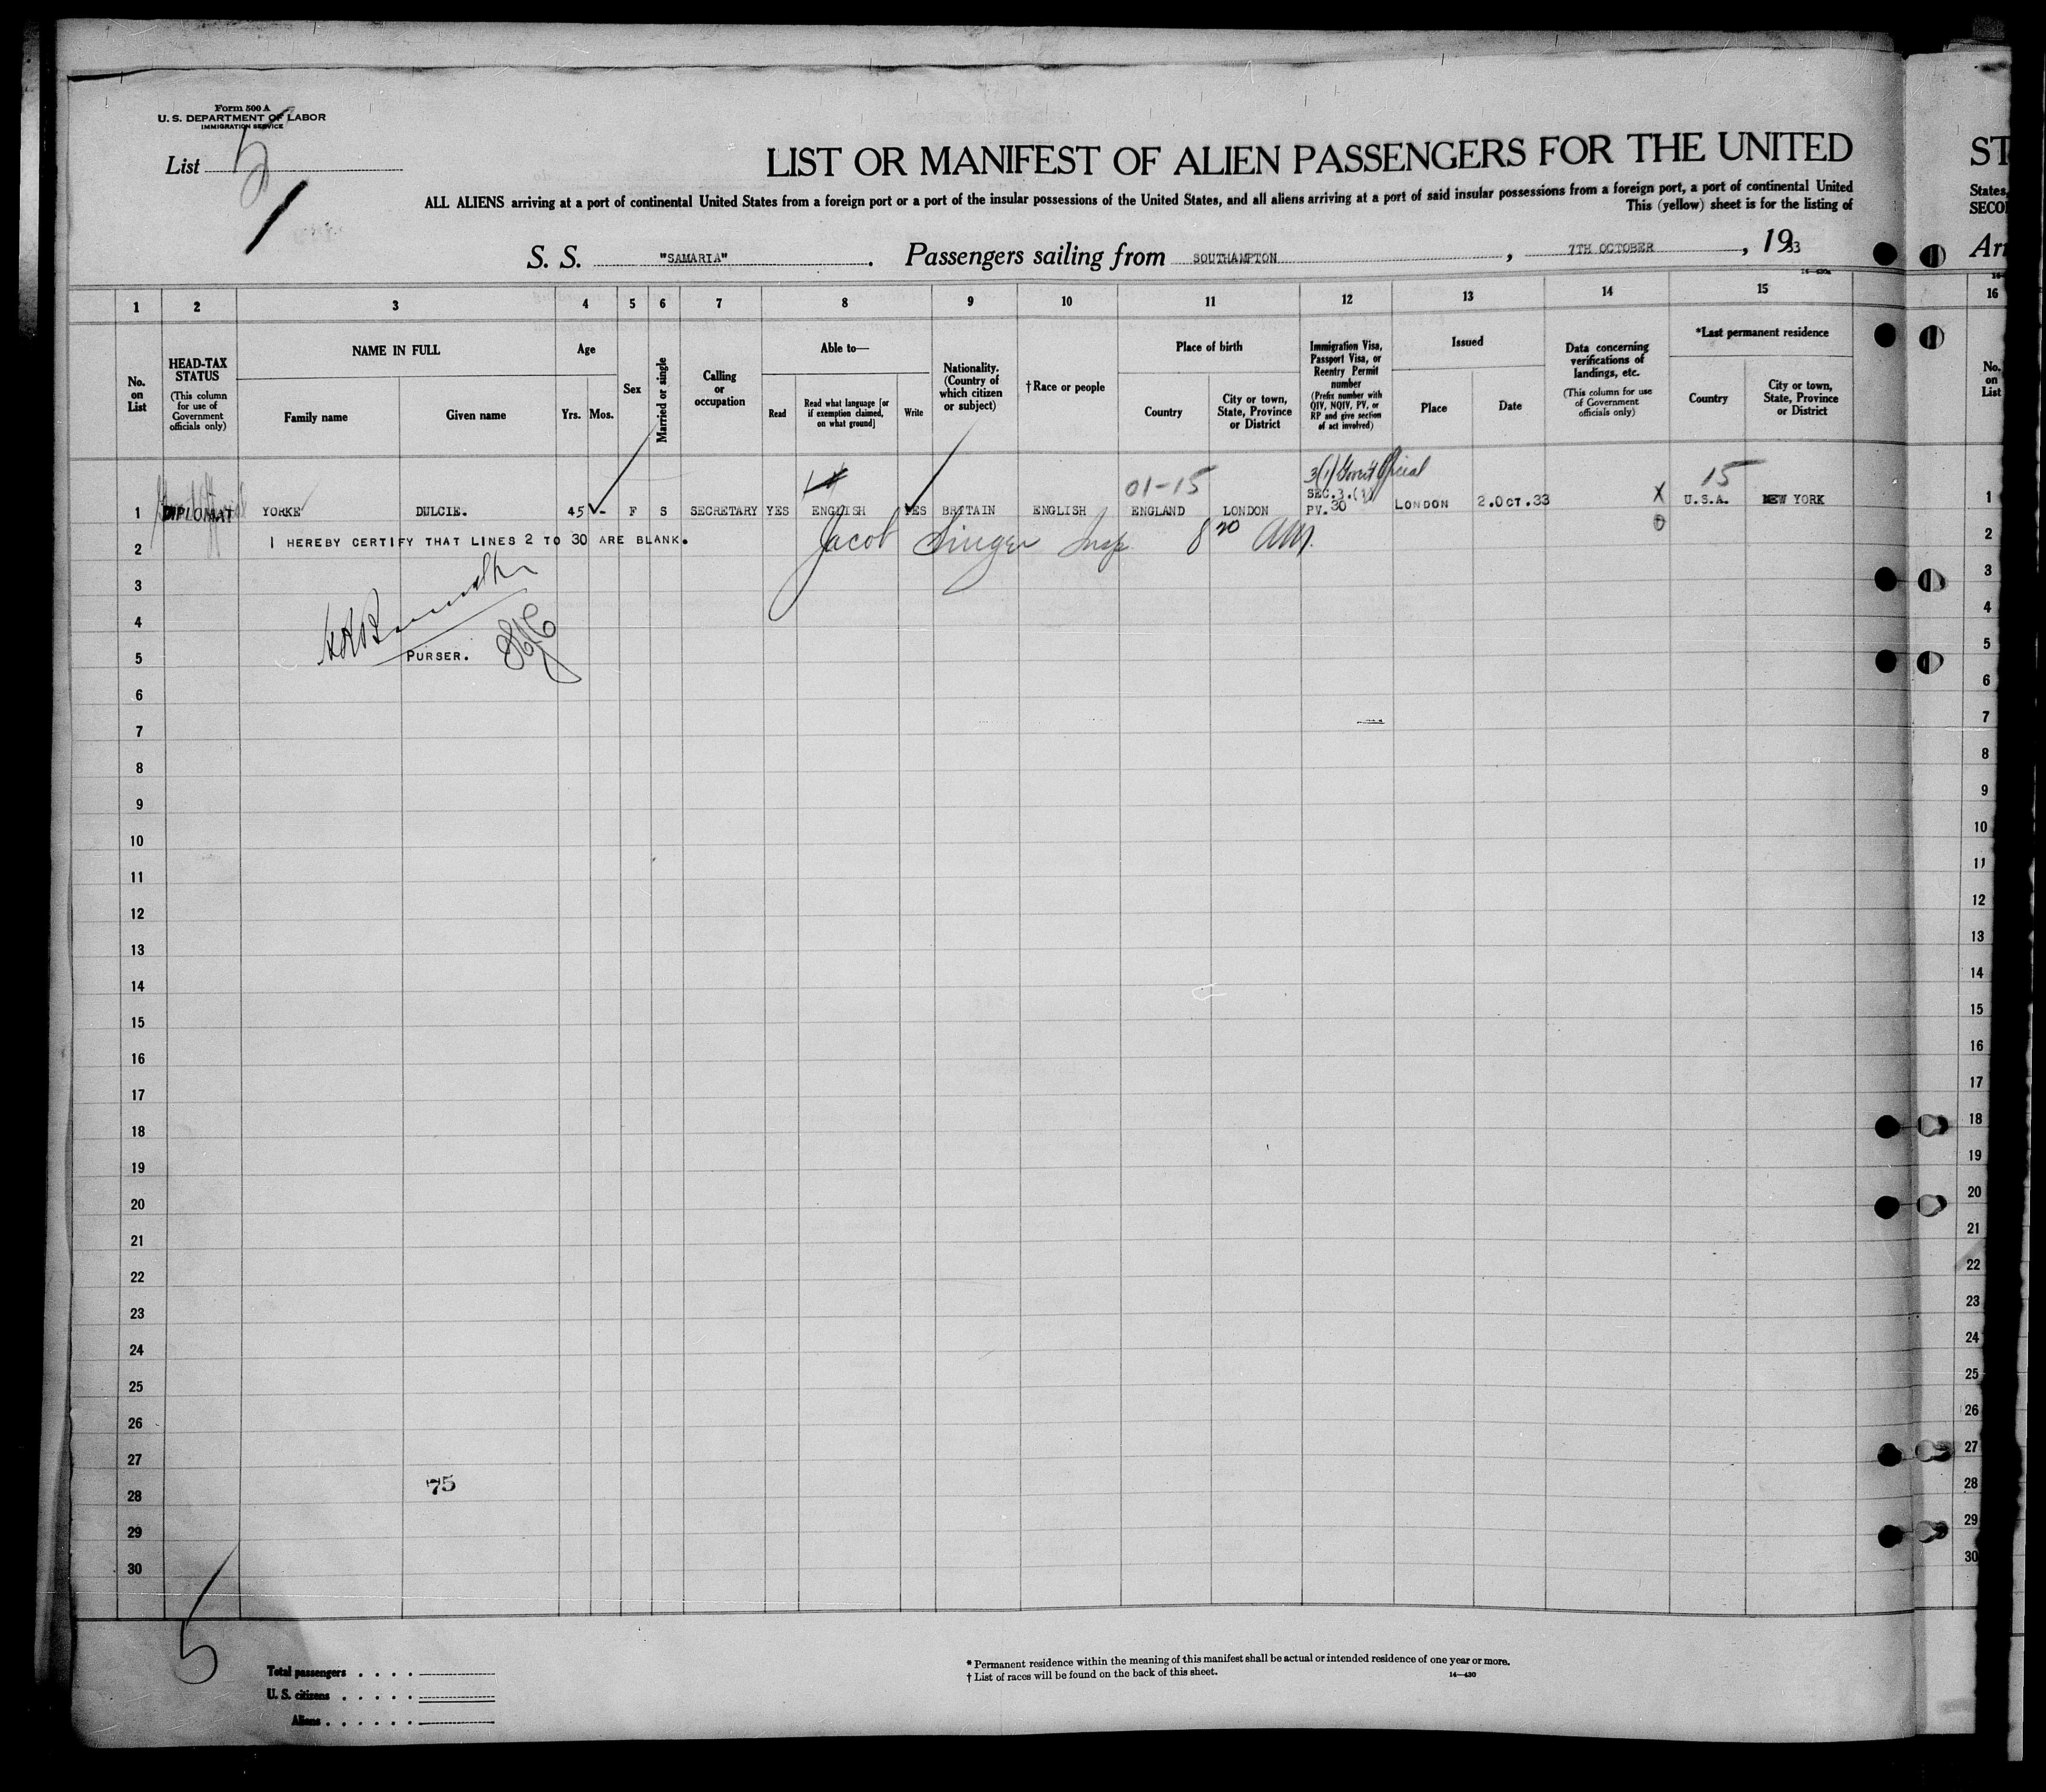 Form 500 A
U. S. DEPARTMENT OF LABOR
IMMIGRATION SERVICE
List 5
1
LIST OR MANIFEST OF ALIEN PASSENGERS FOR THE UNITED
ST
ALL ALIENS arriving at a port of continental United States from a foreign port or a port of the insular possessions of the United States, and all aliens arriving at a port of said insular possessions from a foreign port, a port of continental United
States,
This (yellow) sheet is for the listing of
S. S. "SAMARIA". Passengers sailing from SOUTHAMPTON, 7TH OCTOBER, 1933
Arr
14—430a
1 2 3 4 5 6 7 8 9 10 11 12 13 14 15 16
No. on List
HEAD-TAX STATUS (This column for use of Government officials only)
NAME IN FULL
Family name
Given name
Age
Yrs.
Mos.
Sex
Married or single
Calling or occupation
Able to—
Read
Read what language [or if exemption claimed, on what ground]
Write
Nationality. (Country of which citizen or subject)
† Race or people
Place of birth
Country
City or town, State, Province or District
Immigration Visa, Passport Visa, or Reentry Permit number (Prefix number with QIV, NQIV, PV, or RP and give section of act involved)
Issued
Place
Date
Data concerning verifications of landings, etc. (This column for use of Government officials only)
*Last permanent residence
Country
City or town, State, Province or District
No. on List
01-15
3(1) Gov't Official
15
1 DIPLOMAT YORKE DULCIE. 45 - F S SECRETARY YES ENGLISH YES BRITAIN ENGLISH ENGLAND LONDON SEC.3.(1) PV.30 LONDON 2.OCT.33 X U.S.A. NEW YORK 1
2 I HEREBY CERTIFY THAT LINES 2 TO 30 ARE BLANK. Jacob Singer Insp 8 20 AM. 2
3 3
4 4
5 PURSER. 5
6 6
7 7
8 8
9 9
10 10
11 11
12 12
13 13
14 14
15 15
16 16
17 17
18 18
19 19
20 20
21 21
22 22
23 23
24 24
25 25
26 26
27 27
75
28 28
29 29
30 30
5
Total passengers
U. S. citizens
Aliens
* Permanent residence within the meaning of this manifest shall be actual or intended residence of one year or more.
† List of races will be found on the back of this sheet.
14—430